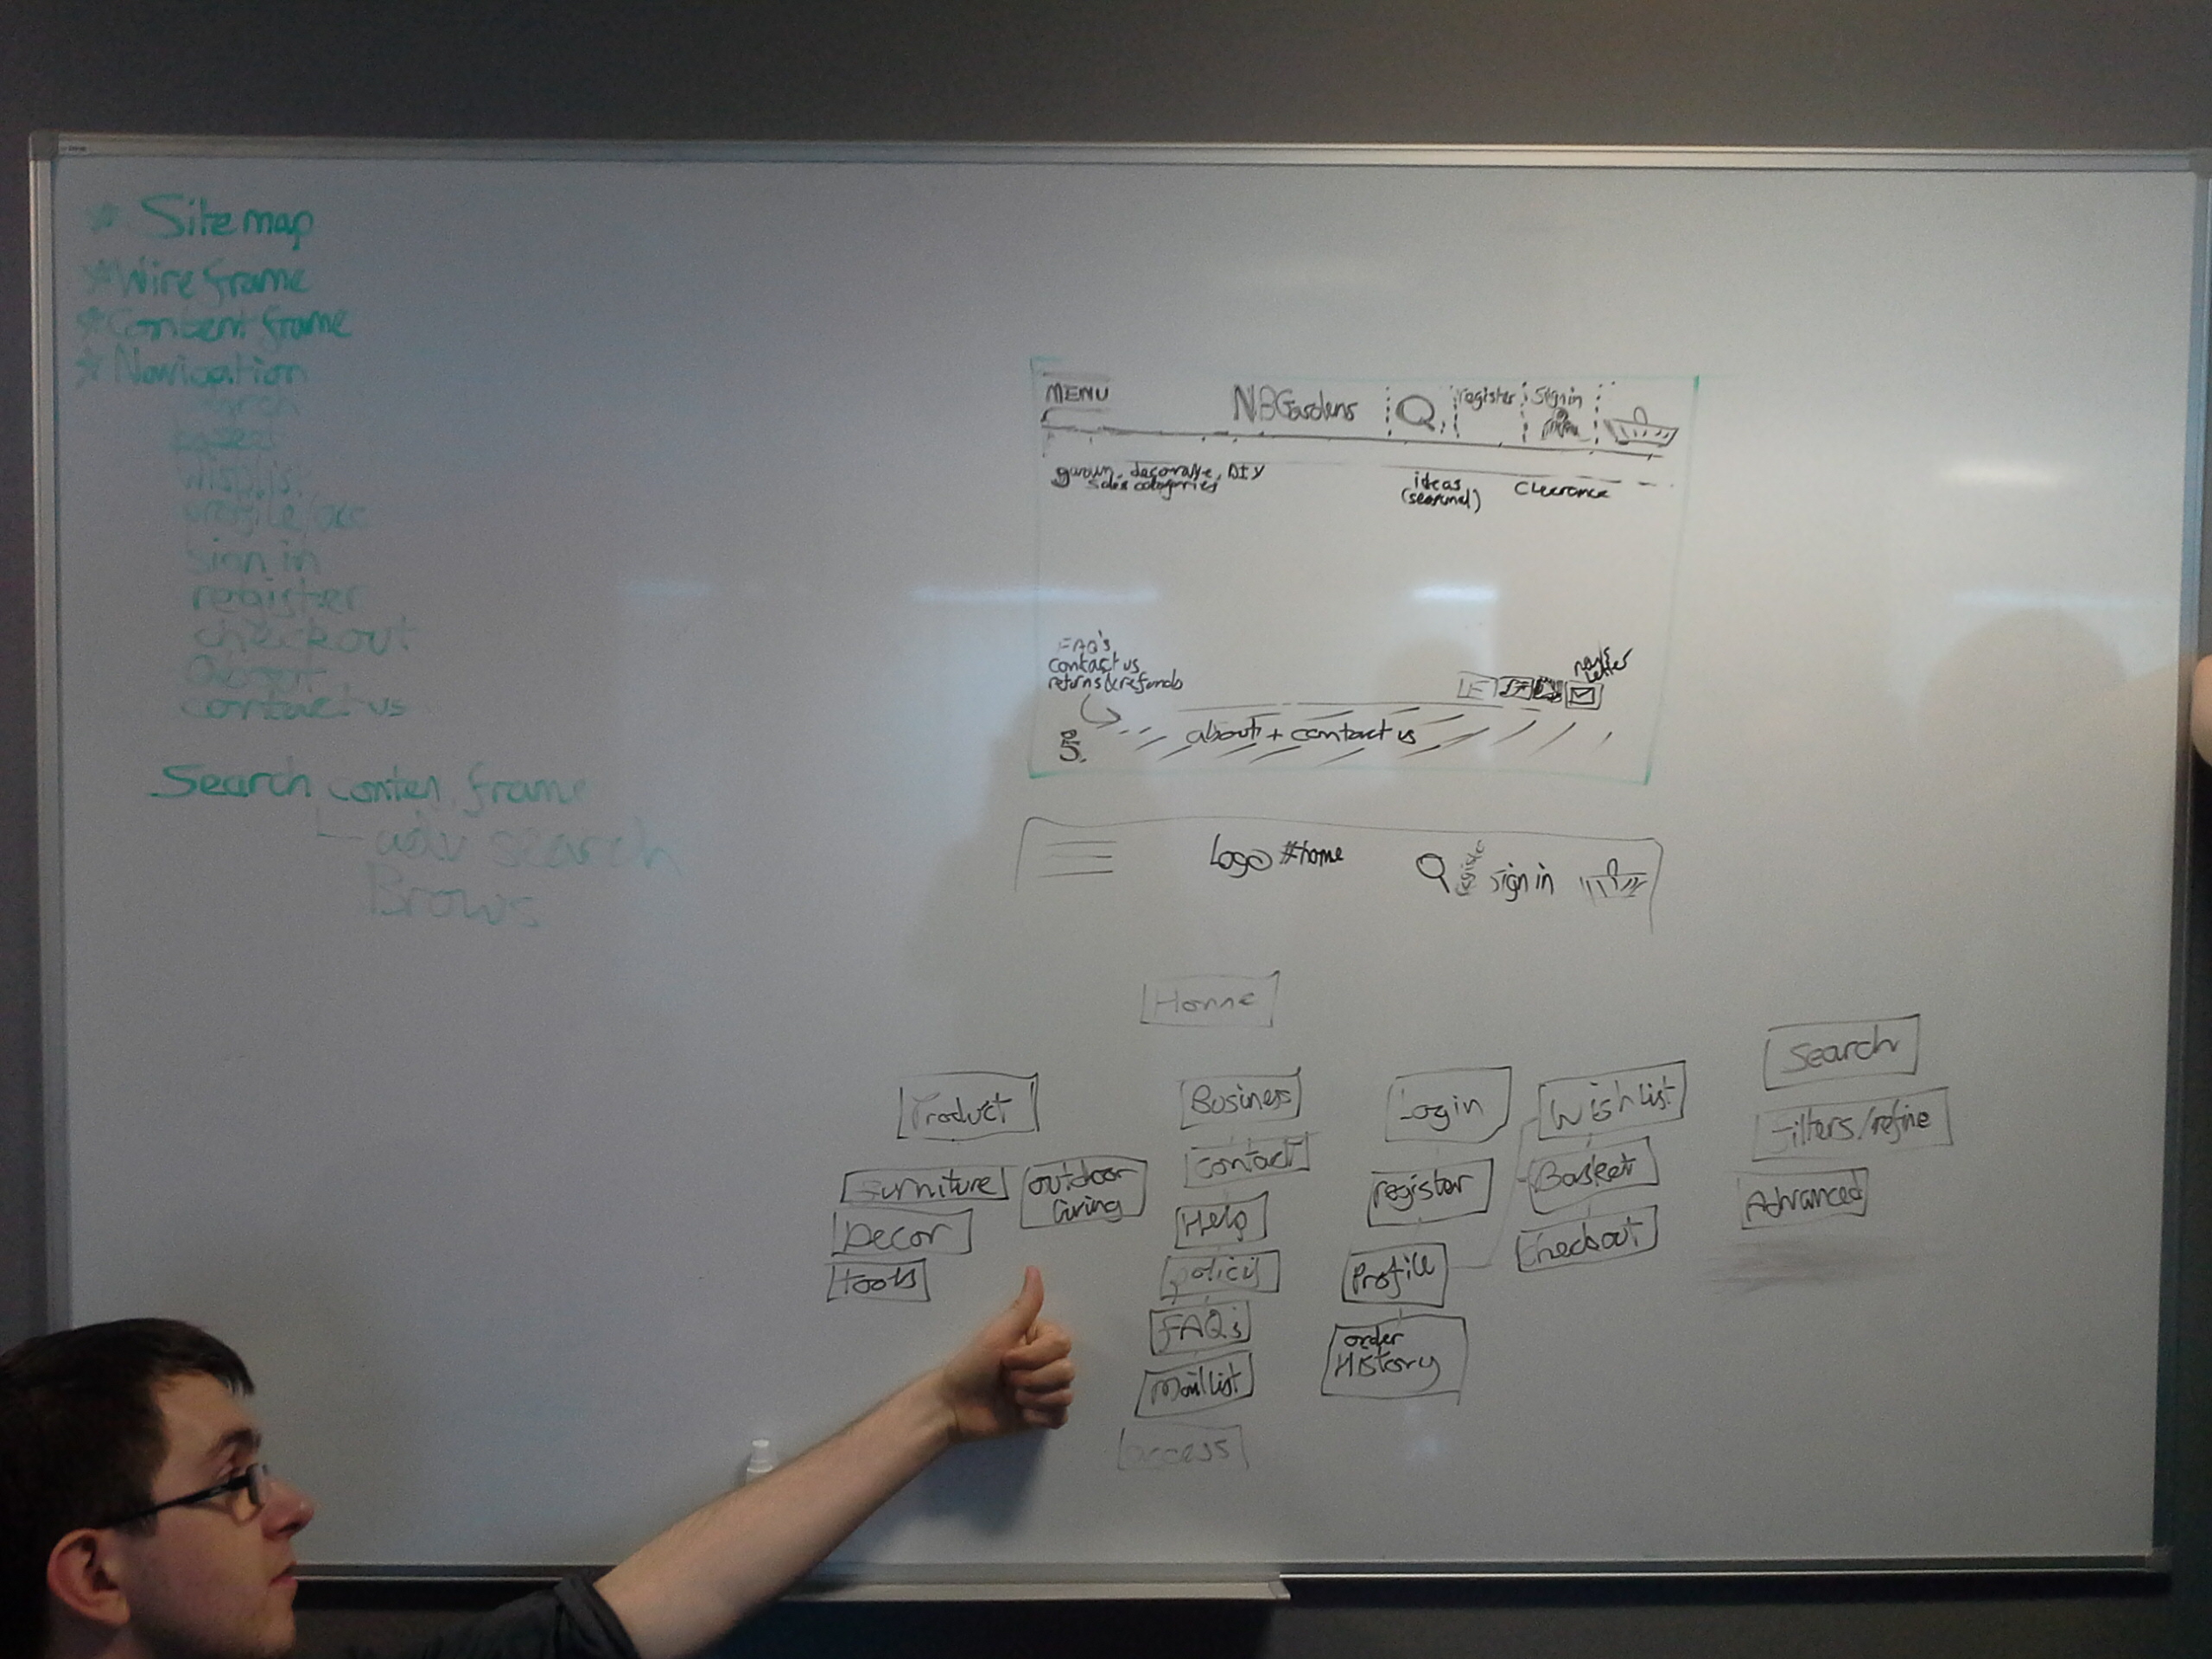 * Sitemap
* Wireframe
* Content frame
* Navigation
search
wishlist
profile/acc
sign in
register
checkout
About
contact us
Search conten frame
adv search
Brows
MENU
NBGardens
register
Sign in
decorative, DIY
sales categories
ideas
(seasonal)
Clearance
FAQ's
contact us
returns & refunds
news
letter
about + contact us
Logo #home
register
sign in
Home
Product
Furniture
Outdoor
Living
Decor
Tools
Business
Contact
Help
policy
FAQs
Mail list
access
Login
register
Profile
order
History
Wishlist
Basket
Checkout
Search
Filters/refine
Advanced